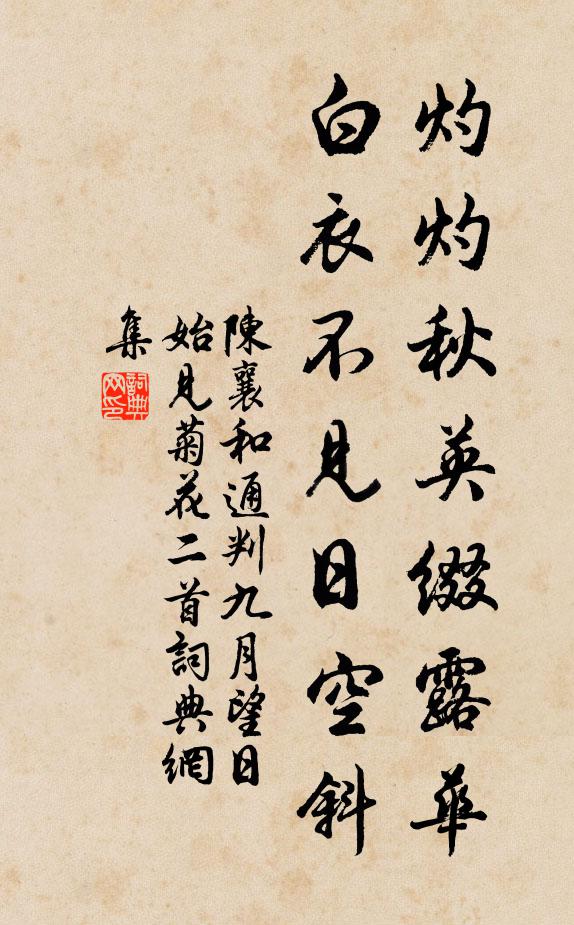 灼灼秋英綴露華
白衣不見日空斜
陳襄和通判九月望日
始見菊花二首詞典網
集
詞典
网印